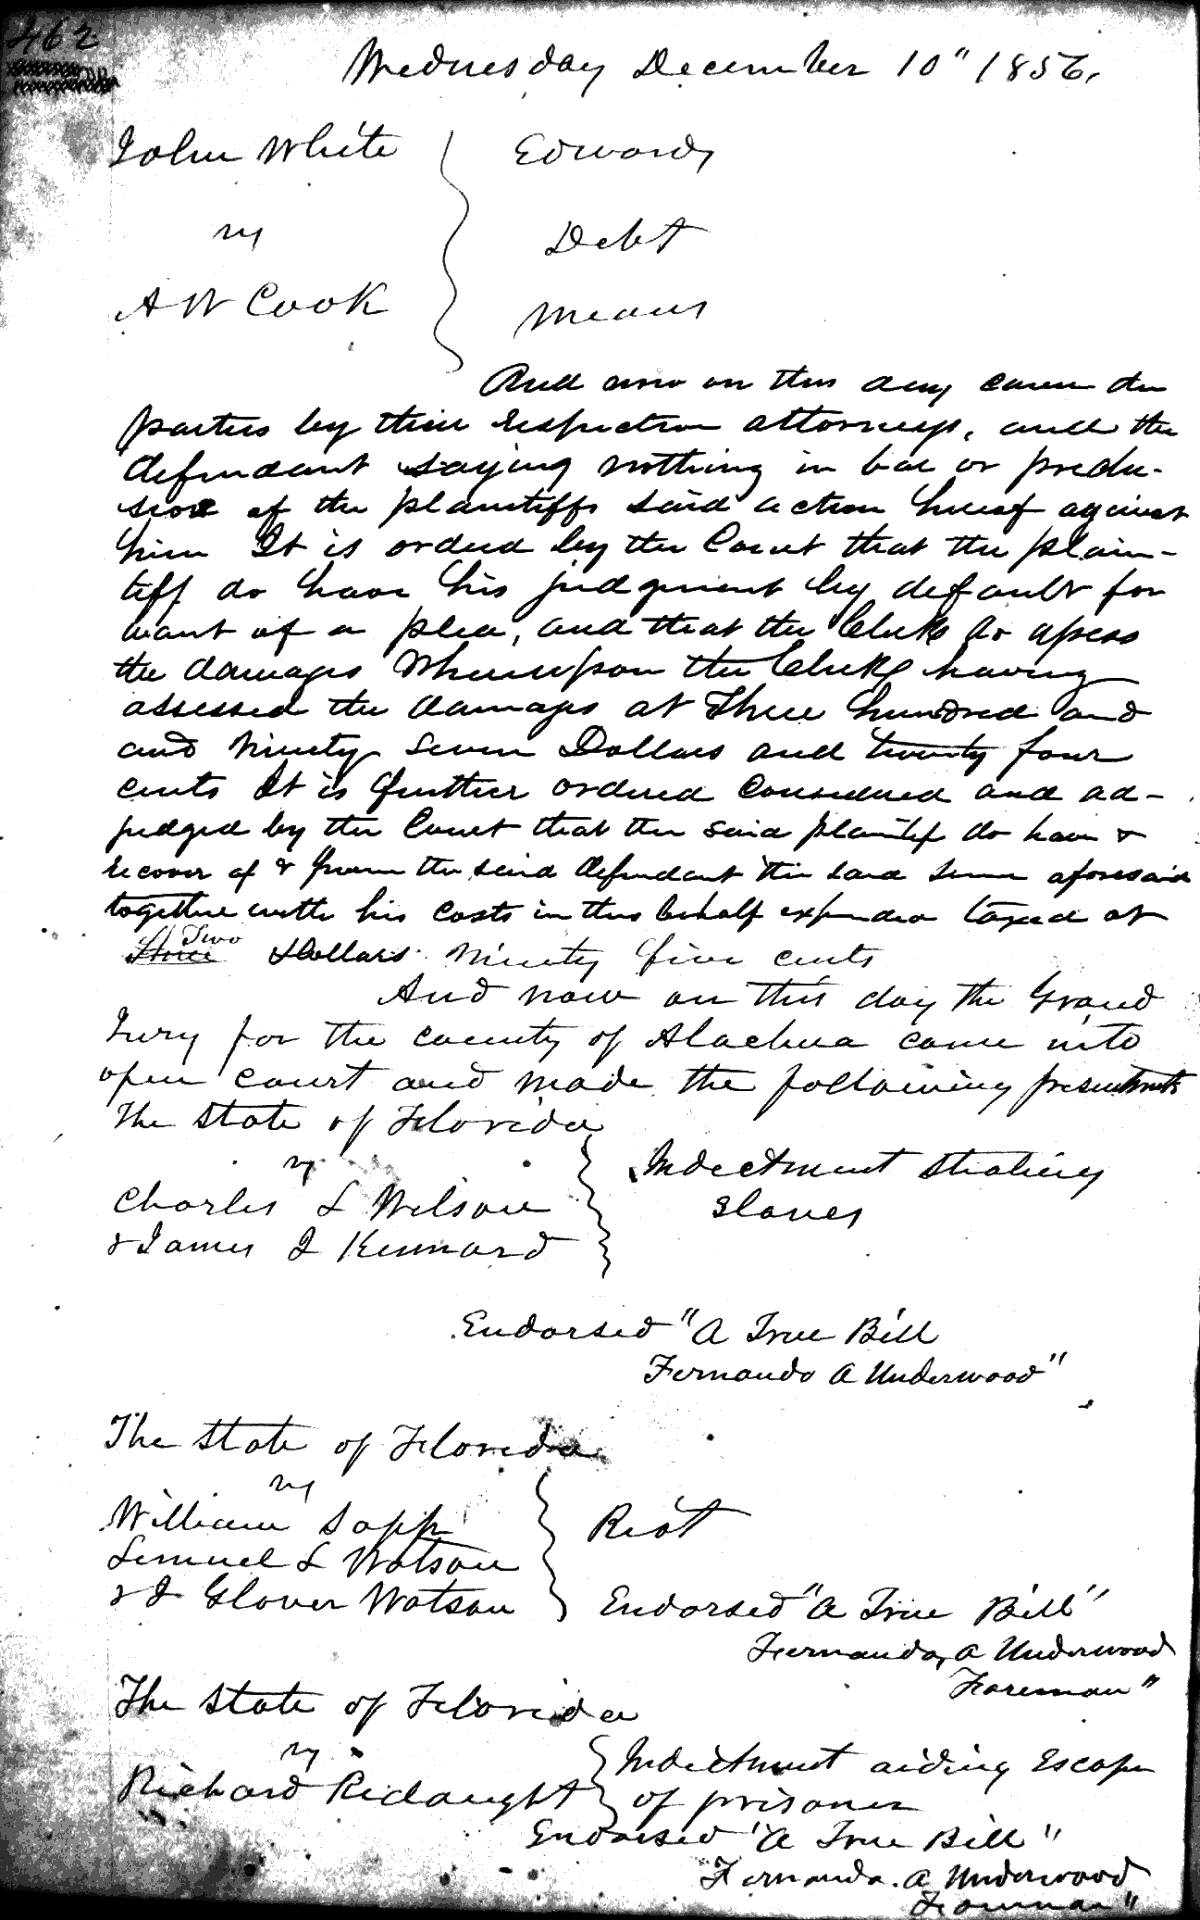 462
Wednesday December 10" 1856.
John White
vs
A W Cook
Edwards
Debt
Means
And now on this day came the
parties by their respective attorneys, and the
defendant saying nothing in bar or preclu-
sion of the plaintiffs said action hereof against
him It is ordered by the Court that the plain-
tiff do have his judgment by default for
want of a plea, and that the Clerk do assess
the damages Whereupon the Clerk having
assessed the damages at Three hundred and
and Ninety Seven Dollars and twenty four
cents It is further ordered considered and ad-
judged by the Court that the said plaintiff do have &
recover of & from the said defendant the said sum aforesaid
together with his costs in this behalf expended taxed at
Three Two Dollars ninety five cents
And now on this day the Grand
Jury for the county of Alachua came into
open court and made the following presentments
The State of Florida
vs
Charles L Wilson
& James J Kennard
Indictment Stealing
Slaves
Endorsed "A True Bill
Fernando A Underwood"
The State of Florida
vs
William Sapp
Lemuel L Watson
& J Glover Watson
Riot
Endorsed "A True Bill"
Fernando, A Underwood
Foreman"
The State of Florida
vs
Richard Ridaught
Indictment aiding Escape
of prisoner
Endorsed "A True Bill"
Fernando. A Underwood
Foreman"